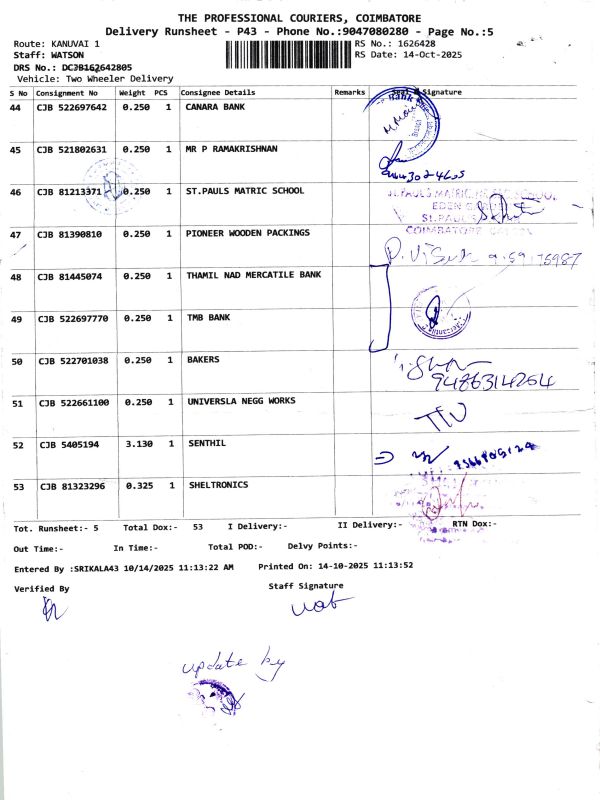 THE PROFESSIONAL COURIERS, COIMBATORE
Delivery Runsheet - P43 - Phone No.:9047080280 - Page No.:5
Route: KANUVAI 1
RS No.: 1626428
Staff: WATSON
RS Date: 14-Oct-2025
DRS No.: DCJB162642805
Vehicle: Two Wheeler Delivery
S No Consignment No Weight PCS Consignee Details Remarks Signature
44 CJB 522697642 0.250 1 CANARA BANK
45 CJB 521802631 0.250 1 MR P RAMAKRISHNAN
46 CJB 81213371 0.250 1 ST.PAULS MATRIC SCHOOL
EDEN
ST.PAUL'S
COIMBATORE
47 CJB 81390810 0.250 1 PIONEER WOODEN PACKINGS
48 CJB 81445074 0.250 1 THAMIL NAD MERCATILE BANK
49 CJB 522697770 0.250 1 TMB BANK
50 CJB 522701038 0.250 1 BAKERS
9486314264
51 CJB 522661100 0.250 1 UNIVERSLA NEGG WORKS
52 CJB 5405194 3.130 1 SENTHIL
53 CJB 81323296 0.325 1 SHELTRONICS
Tot. Runsheet:- 5 Total Dox:- 53 I Delivery:- II Delivery:- RTN Dox:-
Out Time:- In Time:- Total POD:- Delvy Points:-
Entered By :SRIKALA43 10/14/2025 11:13:22 AM Printed On: 14-10-2025 11:13:52
Verified By
Staff Signature
update by